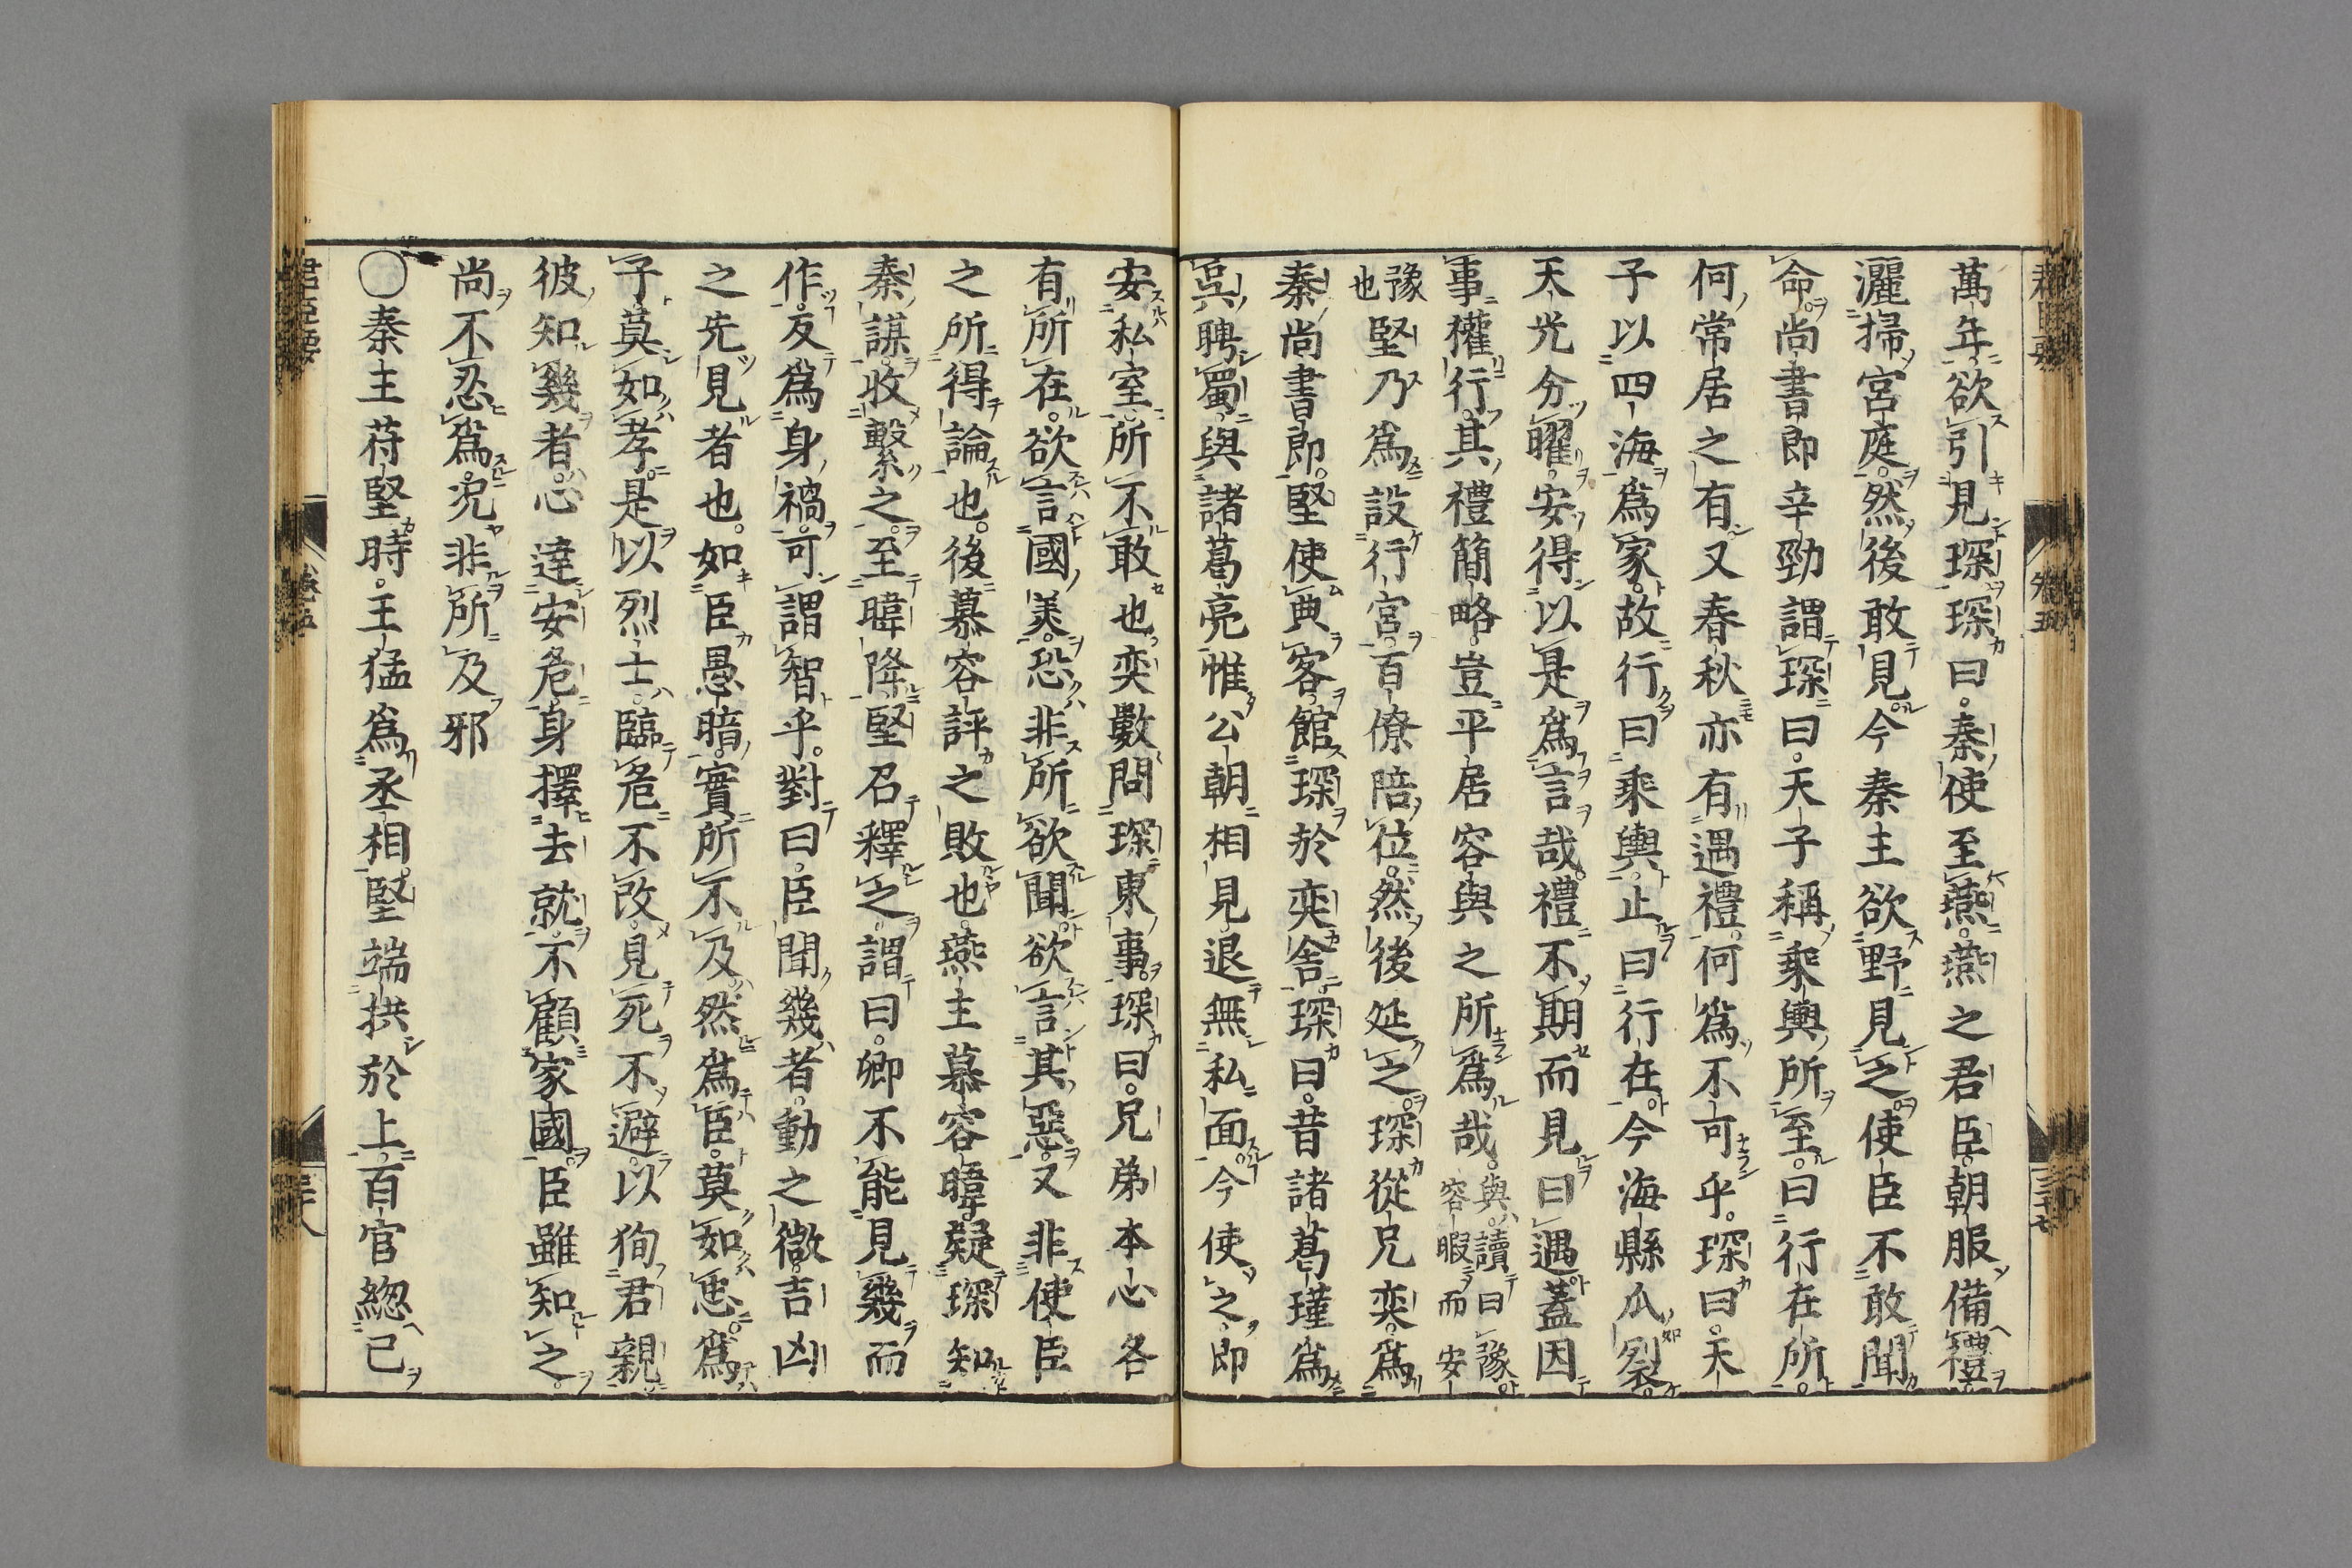 萬年欲引見琛琛曰秦使至燕燕之君臣朝服備禮
灑掃宮庭然後敢見今秦主欲野見之使臣不敢聞
命尚書郎辛勁謂琛曰天子稱乘輿所至曰行在所
何常居之有又春秋亦有遇禮何爲不可乎琛曰天
子以四海爲家故行曰乘輿止曰行在今海縣瓜裂
天光分曜安得以是爲言哉禮不期而見曰遇蓋因
事權行其禮簡略豈平居容與之所爲哉與讀曰豫容暇而安
豫也堅乃爲設行宮百僚陪位然後延之琛從兄奕爲
秦尚書郎堅使典客館琛於奕舍琛曰昔諸葛瑾爲
吳聘蜀與諸葛亮惟公朝相見退無私面今使之即
安私室所不敢也奕數問琛東事琛曰兄弟本心各
有所在欲言國美恐非所欲聞欲言其惡又非使臣
之所得論也後慕容評之敗也燕主慕容暐疑琛知
秦謀收繫之至暐降堅召釋之謂曰卿不能見幾而
作反爲身禍可謂智乎對曰臣聞幾者動之微吉凶
之先見者也如臣愚暗實所不及然爲臣莫如忠爲
子莫如孝是以烈士臨危不改見死不避以狥君親
彼知幾者心達安危身擇去就不顧家國臣雖知之
尚不忍爲況非所及邪
〇秦主苻堅時王猛爲丞相堅端拱於上百官緫己
君臣
卷五
三十八
卷五
三十七